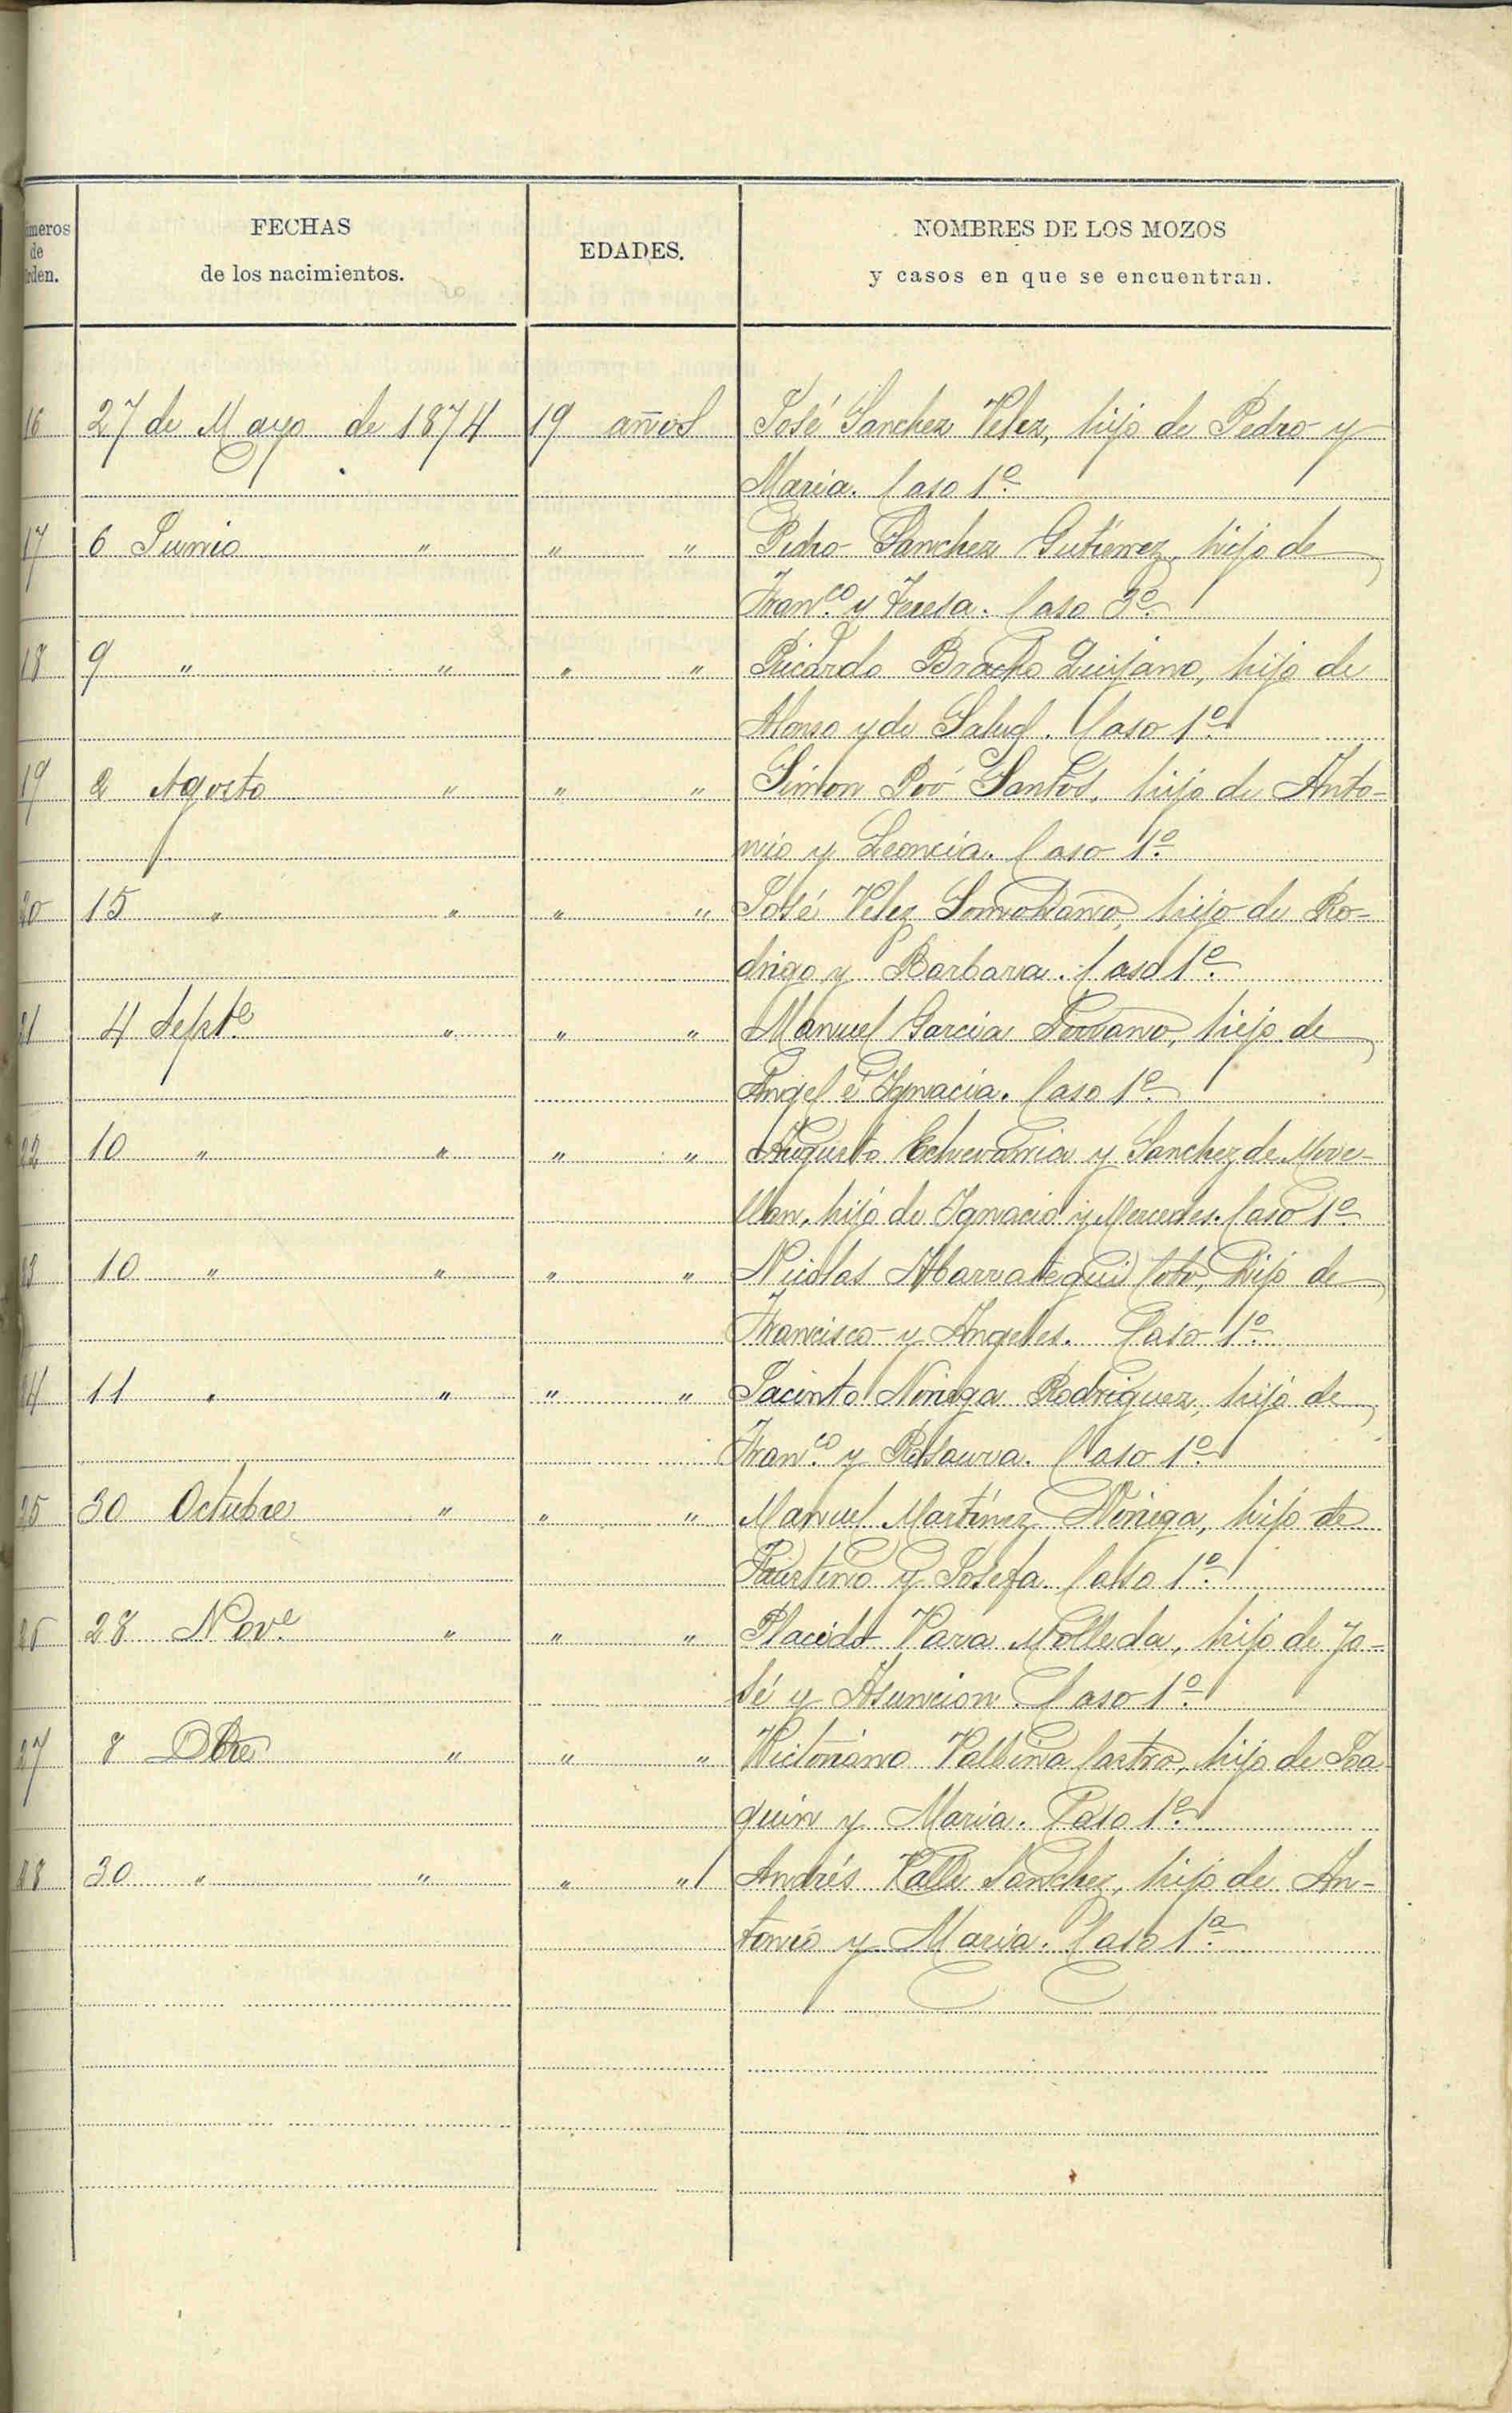 úmeros de orden.
FECHAS
de los nacimientos.
EDADES.
NOMBRES DE LOS MOZOS
y casos en que se encuentran.
16 27 de Mayo de 1874 19 años José Sanchez Velez, hijo de Pedro y
Maria. Caso 1º.
17 6 Junio " " " Pedro Sanchez Gutierrez, hijo de
Franco. y Teresa. Caso 3º.
18 9 " " " " Ricardo Bracho Quijano, hijo de
Alonso y de Salud. Caso 1º.
19 2 Agosto " " " Simon Poó Santos, hijo de Anto-
nio y Leoncia. Caso 1º.
20 15 " " " " José Velez Somohano, hijo de Ro-
drigo y Barbara. Caso 1º.
21 4 Septe. " " " Manuel Garcia, hijo de
Angel é Ygnacia. Caso 1º.
22 10 " " " " Augusto Echevarria y Sanchez de Move-
llan, hijo de Ygnacio y Mercedes. Caso 1º.
23 10 " " " " Nicolas Abarrategui, hijo de
Francisco y Angeles. Caso 1º.
24 11 " " " " Jacinto Noriega Rodriguez, hijo de
Franco. y Rosaura. Caso 1º.
25 30 Octubre " " " Manuel Martinez Noriega, hijo de
Faustino y Josefa. Caso 1º.
26 28 Nove. " " " Placido Vara Molleda, hijo de Jo-
sé y Asuncion. Caso 1º.
27 8 Dbre " " " Victoriano Vallina Castro, hijo de Joa
quin y Maria. Caso 1º.
28 30 " " " " Andrés Valle Sanchez, hijo de An-
tonio y Maria. Caso 1ª.